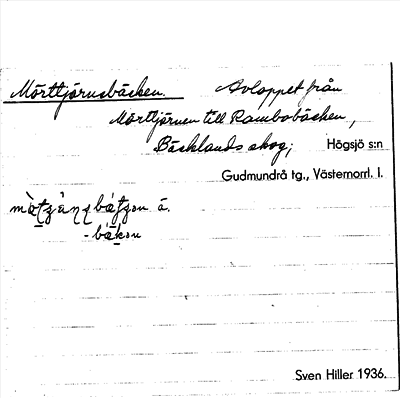 Mörttjärnsbäcken. Avloppet från
Mörttjärnen till Rambobäcken,
Bäcklands skog; Högsjö s:n
Gudmundrå tg., Västernorrl. l.
å.
Sven Hiller 1936.